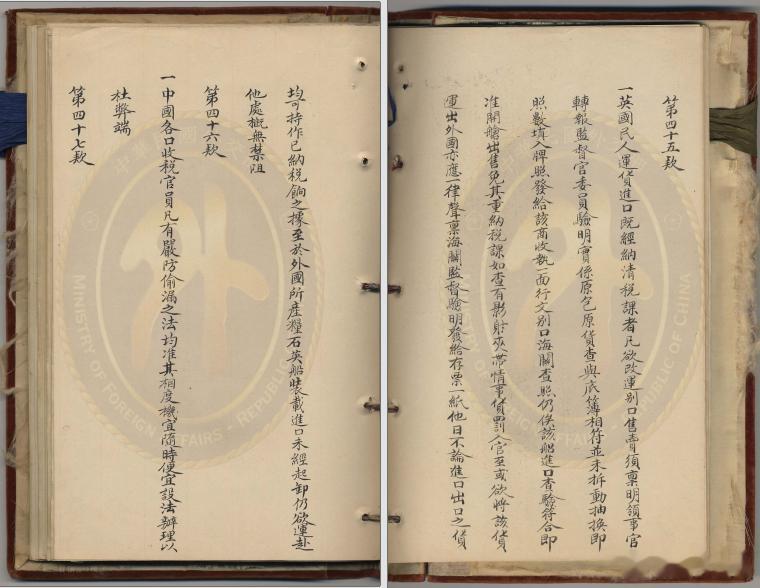 第四十五款
一英國民人運貨進口既經納清稅課者凡欲改運別口售賣須稟明領事官
轉報監督官委員驗明實係原包原貨查與底簿相符並未拆動抽換即
照數填入牌照發給該商收執一面行文別口海關查照仍俟該船進口查驗符合即
准開艙出售免其重納稅課如查有影射夾帶情事貨罰入官至或欲將該貨
運出外國亦應一律聲稟海關監督驗明發給存票一紙他日不論進口出口之貨
均可持作已納稅餉之據至於外國所產糧石英船裝載進口未經起卸仍欲運赴
他處概無禁阻
第四十六款
一中國各口收稅官員凡有嚴防偷漏之法均准其相度機宜隨時便宜設法辦理以
杜弊端
第四十七款
MINISTRY OF FOREIGN AFFAIRS REPUBLIC OF CHINA
MINISTRY OF FOREIGN AFFAIRS REPUBLIC OF CHINA